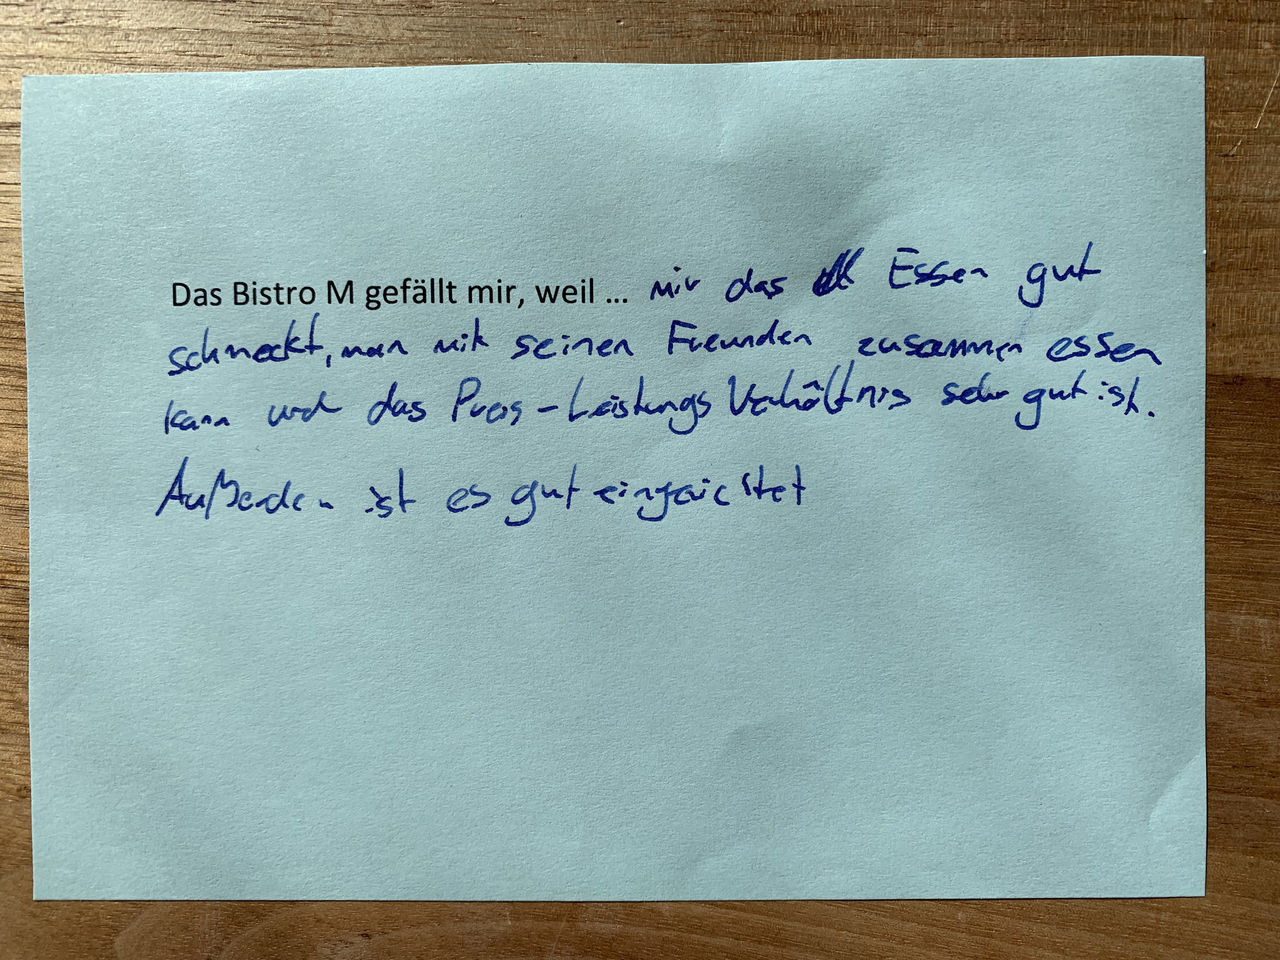 Das Bistro M gefällt mir, weil ... mir das Essen gut
schmeckt, man mit seinen Freunden zusammen essen
kann und das Preis-Leistungs Verhältnis sehr gut ist.
Außerdem ist es gut eingerichtet